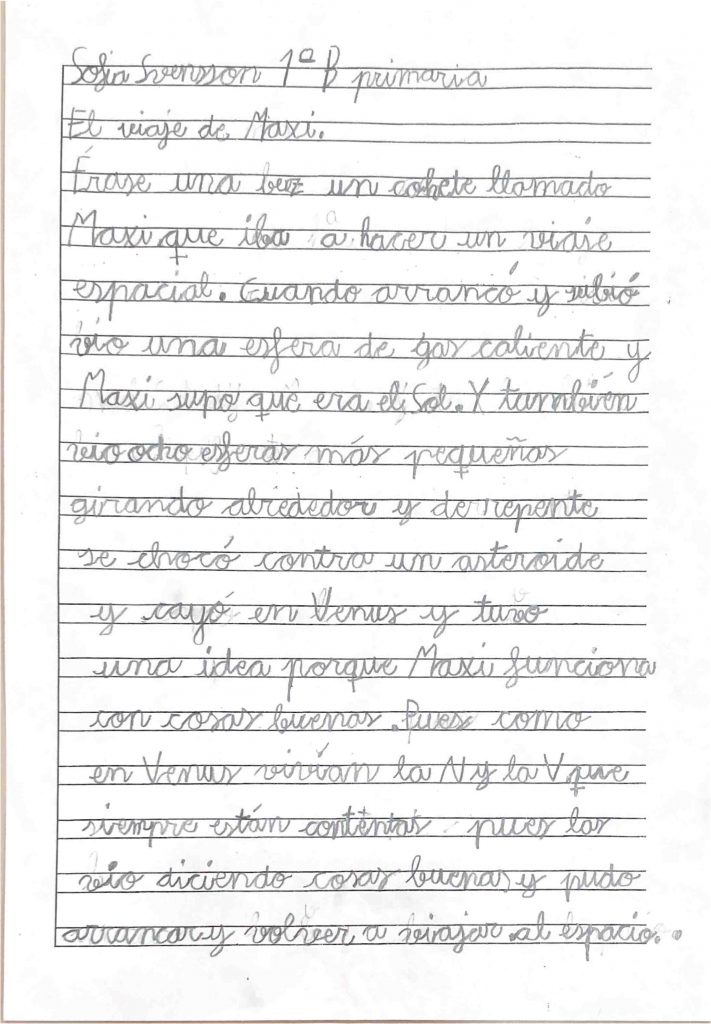 Sofia Svensson 1º B primaria
El viaje de Maxi.
Érase una bez un cohete llamado
Maxi que iba a hacer un viaje
espacial. Cuando arrancó y subió
vio una esfera de gas caliente y
Maxi supo que era el Sol. Y también
vio ocho esferas más pequeñas
girando alrededor y de repente
se chocó contra un asteroide
y cayó en Venus y tuvo
una idea porque Maxi funciona
con cosas buenas. Pues como
en Venus vivían la N y la V que
siempre están contentas pues las
vio diciendo cosas buenas y pudo
arrancar y volver a viajar al espacio.